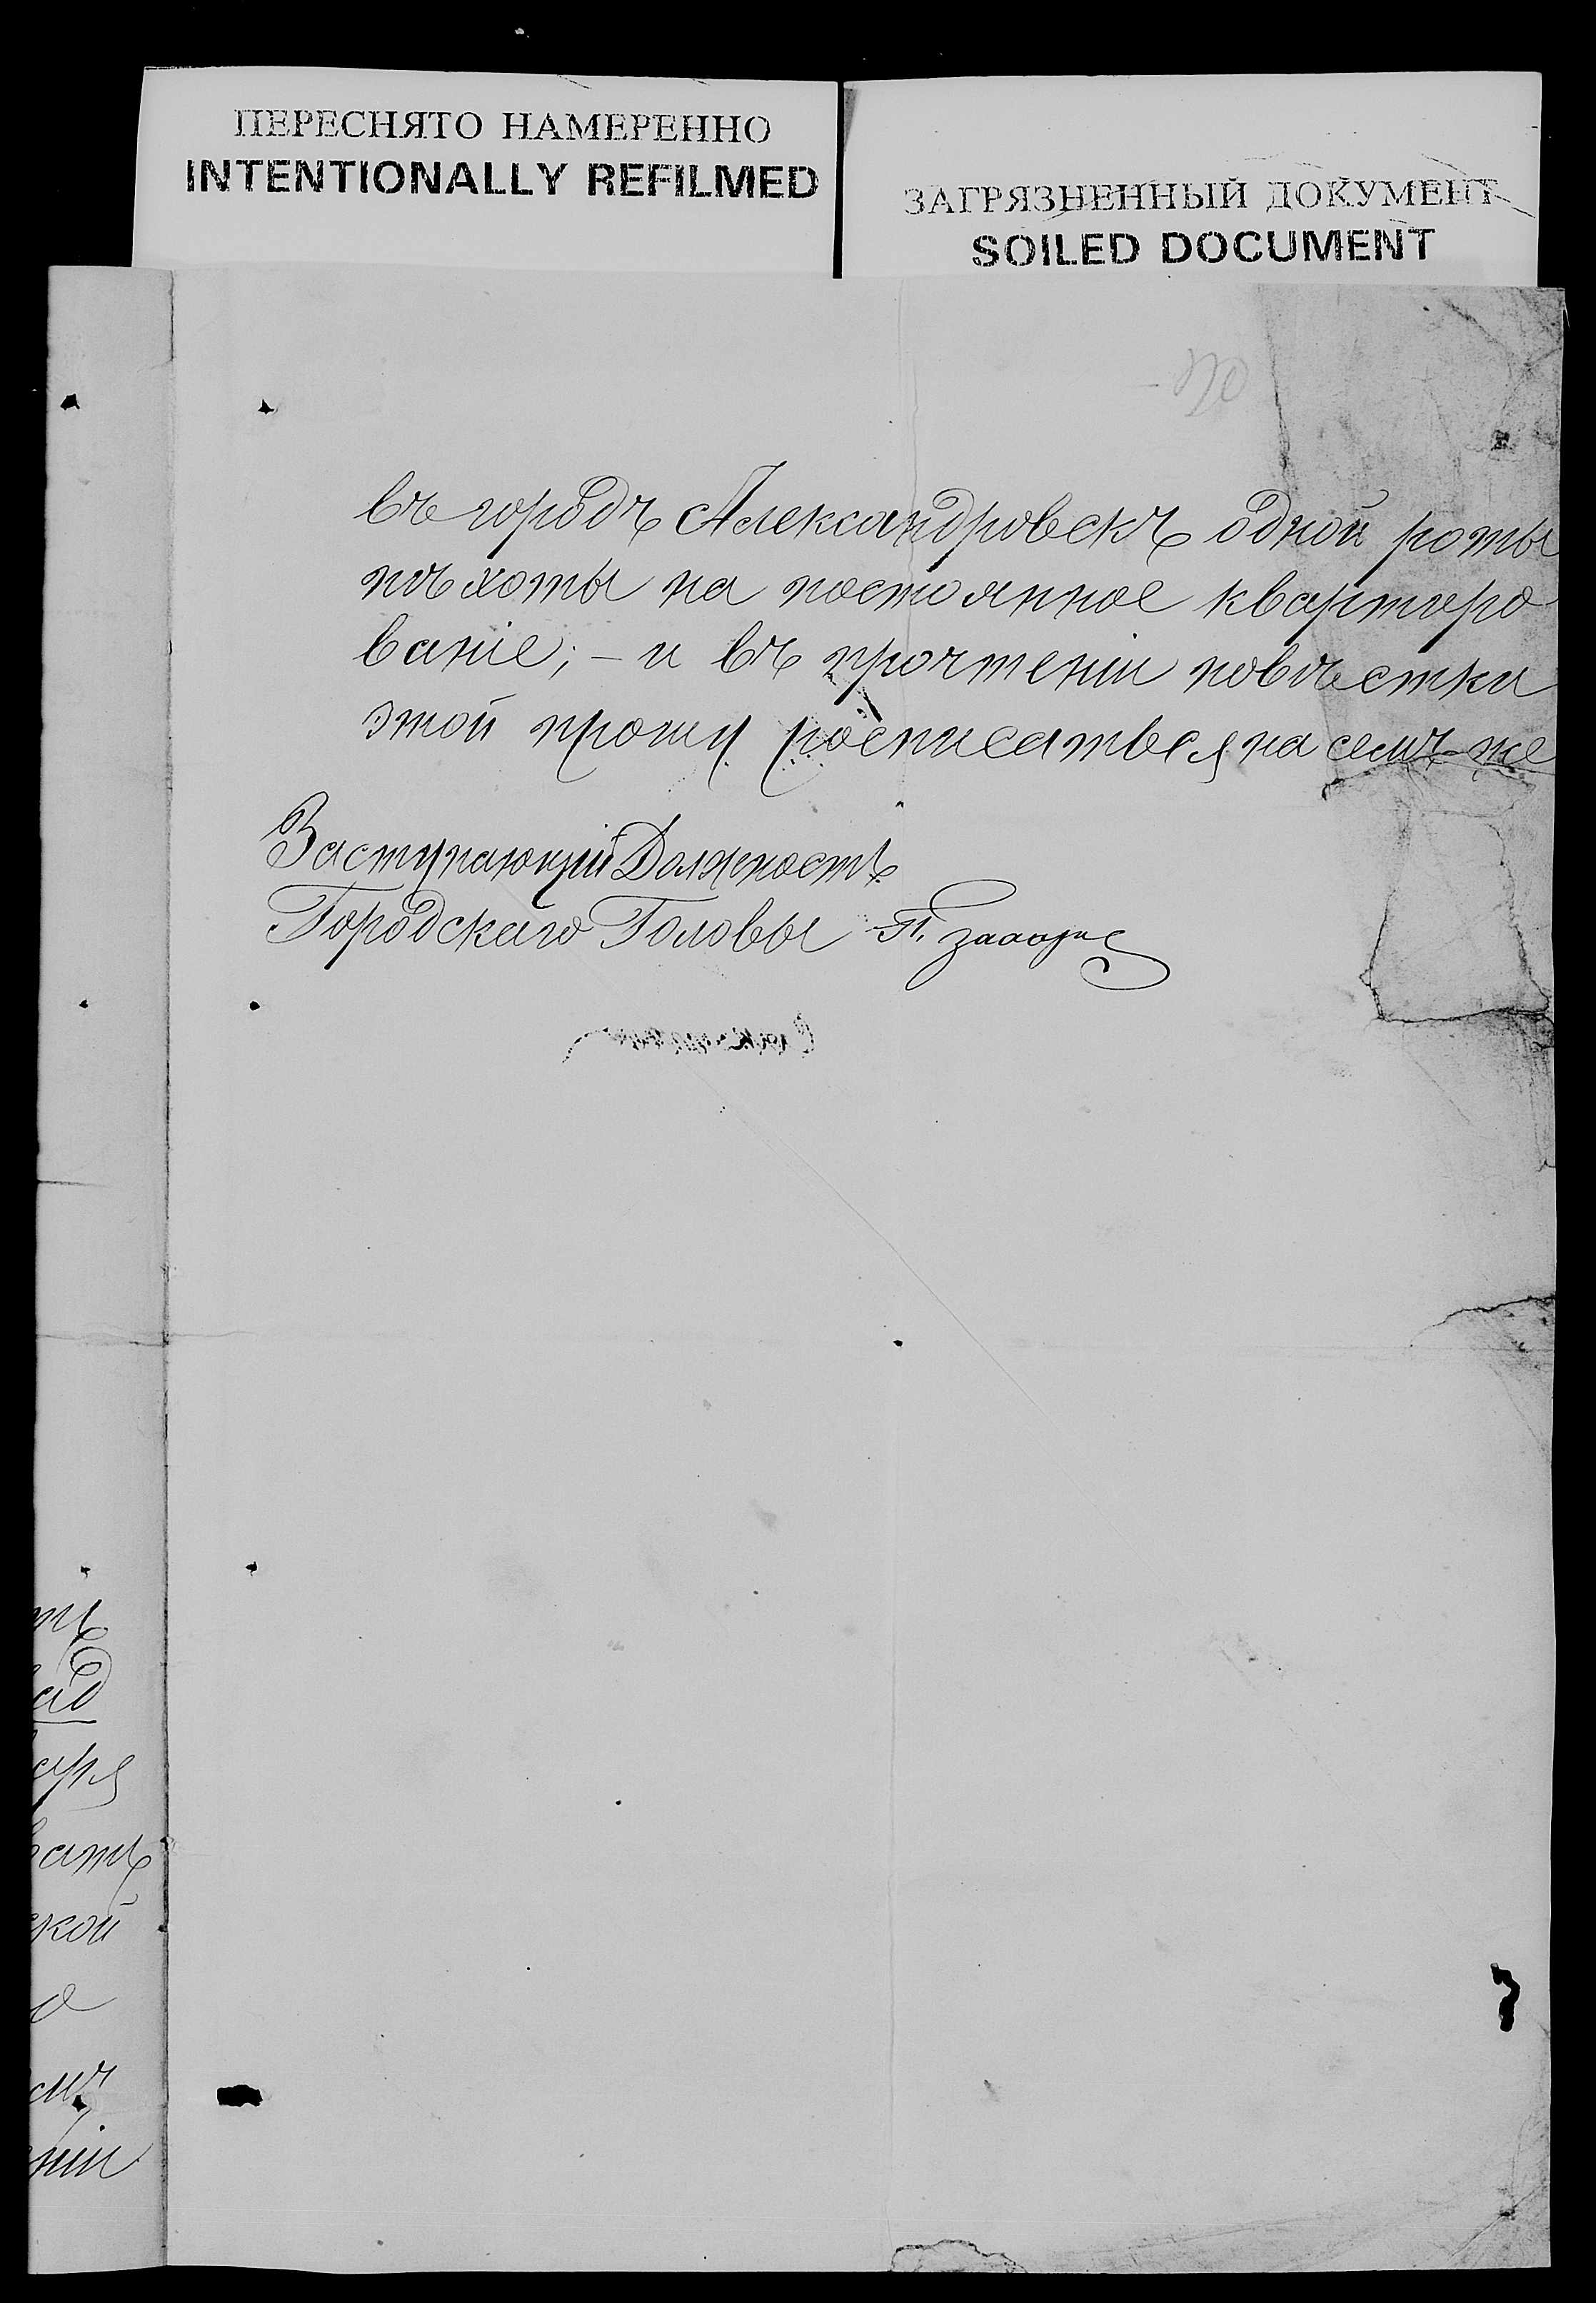 ПЕРЕСНЯТО НАМЕРЕННО
INTENTIONALLY REFILMED
ЗАГРЯЗНЕННЫЙ ДОКУМЕНТ
SOILED DOCUMENT
въ городѣ Александровскѣ одной роты
пѣхоты на постоянное квартиро
ваніе; – и въ прочтеніи повѣстки
этой прошу росписаться на семъ-же
Заступающій Должность
Городскаго Головы П.
ть
ад
аря
вать
ской
о
емъ
ніи